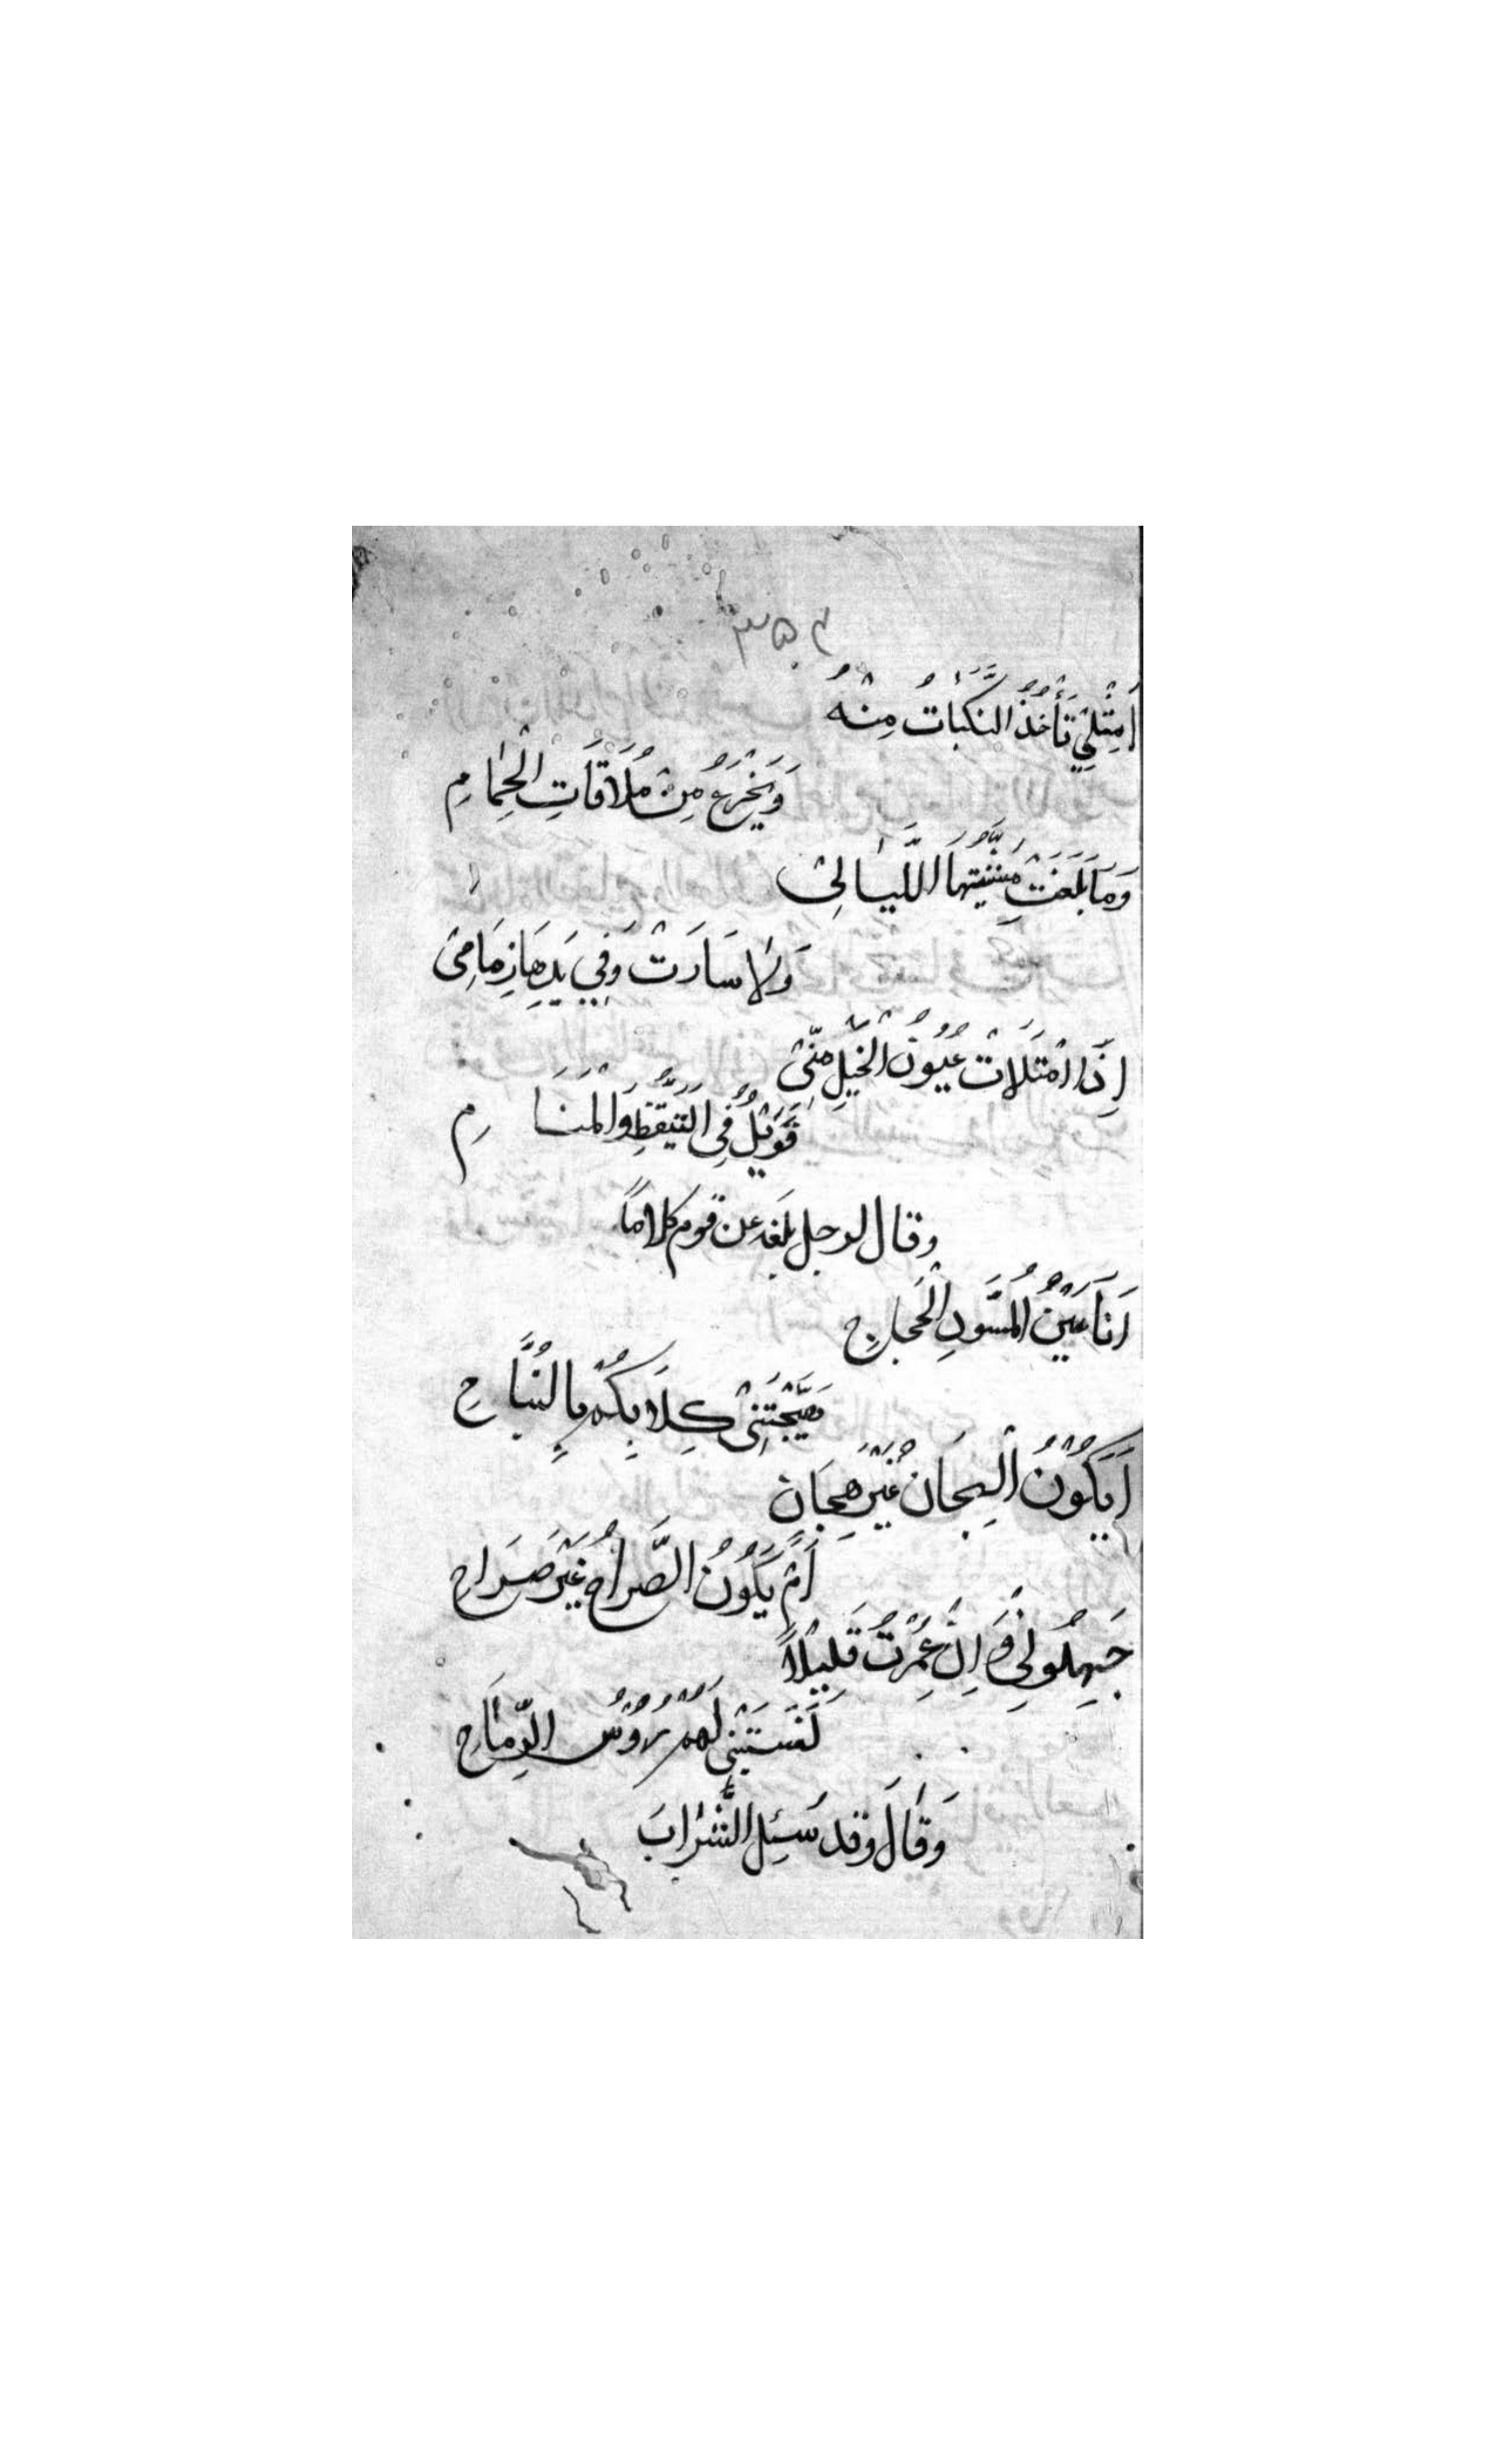 ۳۵۴
اَمِثْلِي تَأْخُذُ النَّكَبَاتُ مِنْهُ
وَيَجْزَعُ مِنْ مُلَاقَاتِ الْحِمَامِ
وَمَا بَلَغَتْ مَشِيَّتَهَا اللَّيَالِيْ
وَلَا سَارَتْ وَفِي يَدِهَا زِمَامِيْ
اِذَا امْتَلَاَتْ عُيُوْنُ الْخَيْلِ مِنِّيْ
فَوَيْلٌ فِي التَّيَقُّظِ وَالْمَنَامِ
وقال لرجل بلغه عن قوم كلاماً
اَنَا عَيْنُ الْمُسَوَّدِ الْجَحْجَاحِ
هَيَّجَتْنِيْ كِلَابُكُمْ بِالنُّبَّاحِ
اَيَكُوْنُ الْهِجَانُ غَيْرَ هِجَانٍ
اَمْ يَكُوْنُ الصُّرَاحُ غَيْرَ صُرَاحِ
جَهِلُوْنِي وَاِنْ عُمِرْتُ قَلِيْلاً
نَسَبَتْنِي لَهُمْ رُؤُسُ الرِّمَاحِ
وَقَالَ وقد سُئِلَ الشَّرَابَ